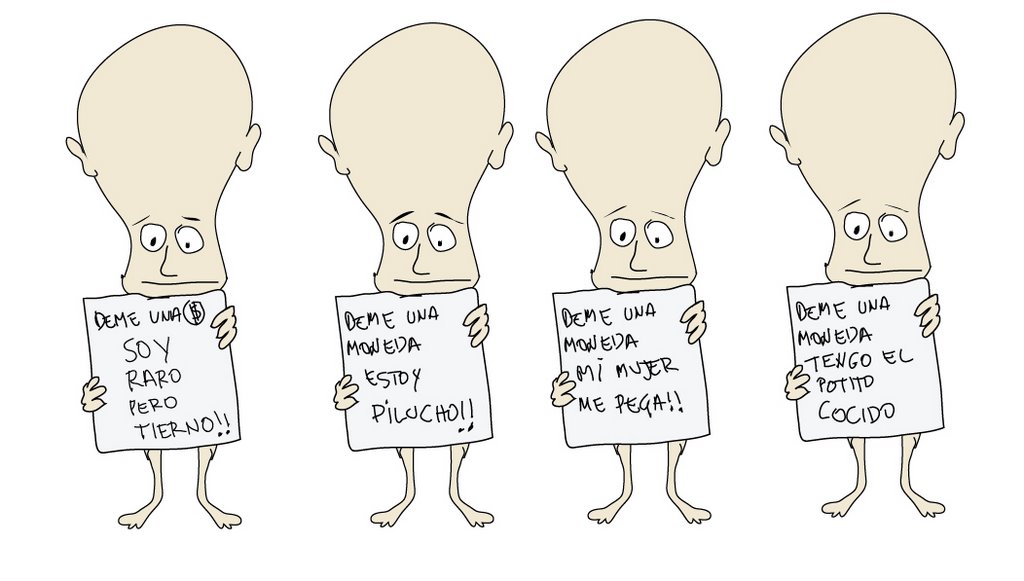 DEME UNA $
SOY
RARO
PERO
TIERNO!!
DEME UNA
MONEDA
ESTOY
PILUCHO!!
DEME UNA
MONEDA
MI MUJER
ME PEGA!!
DEME UNA
MONEDA
TENGO EL
POTITO
COCIDO